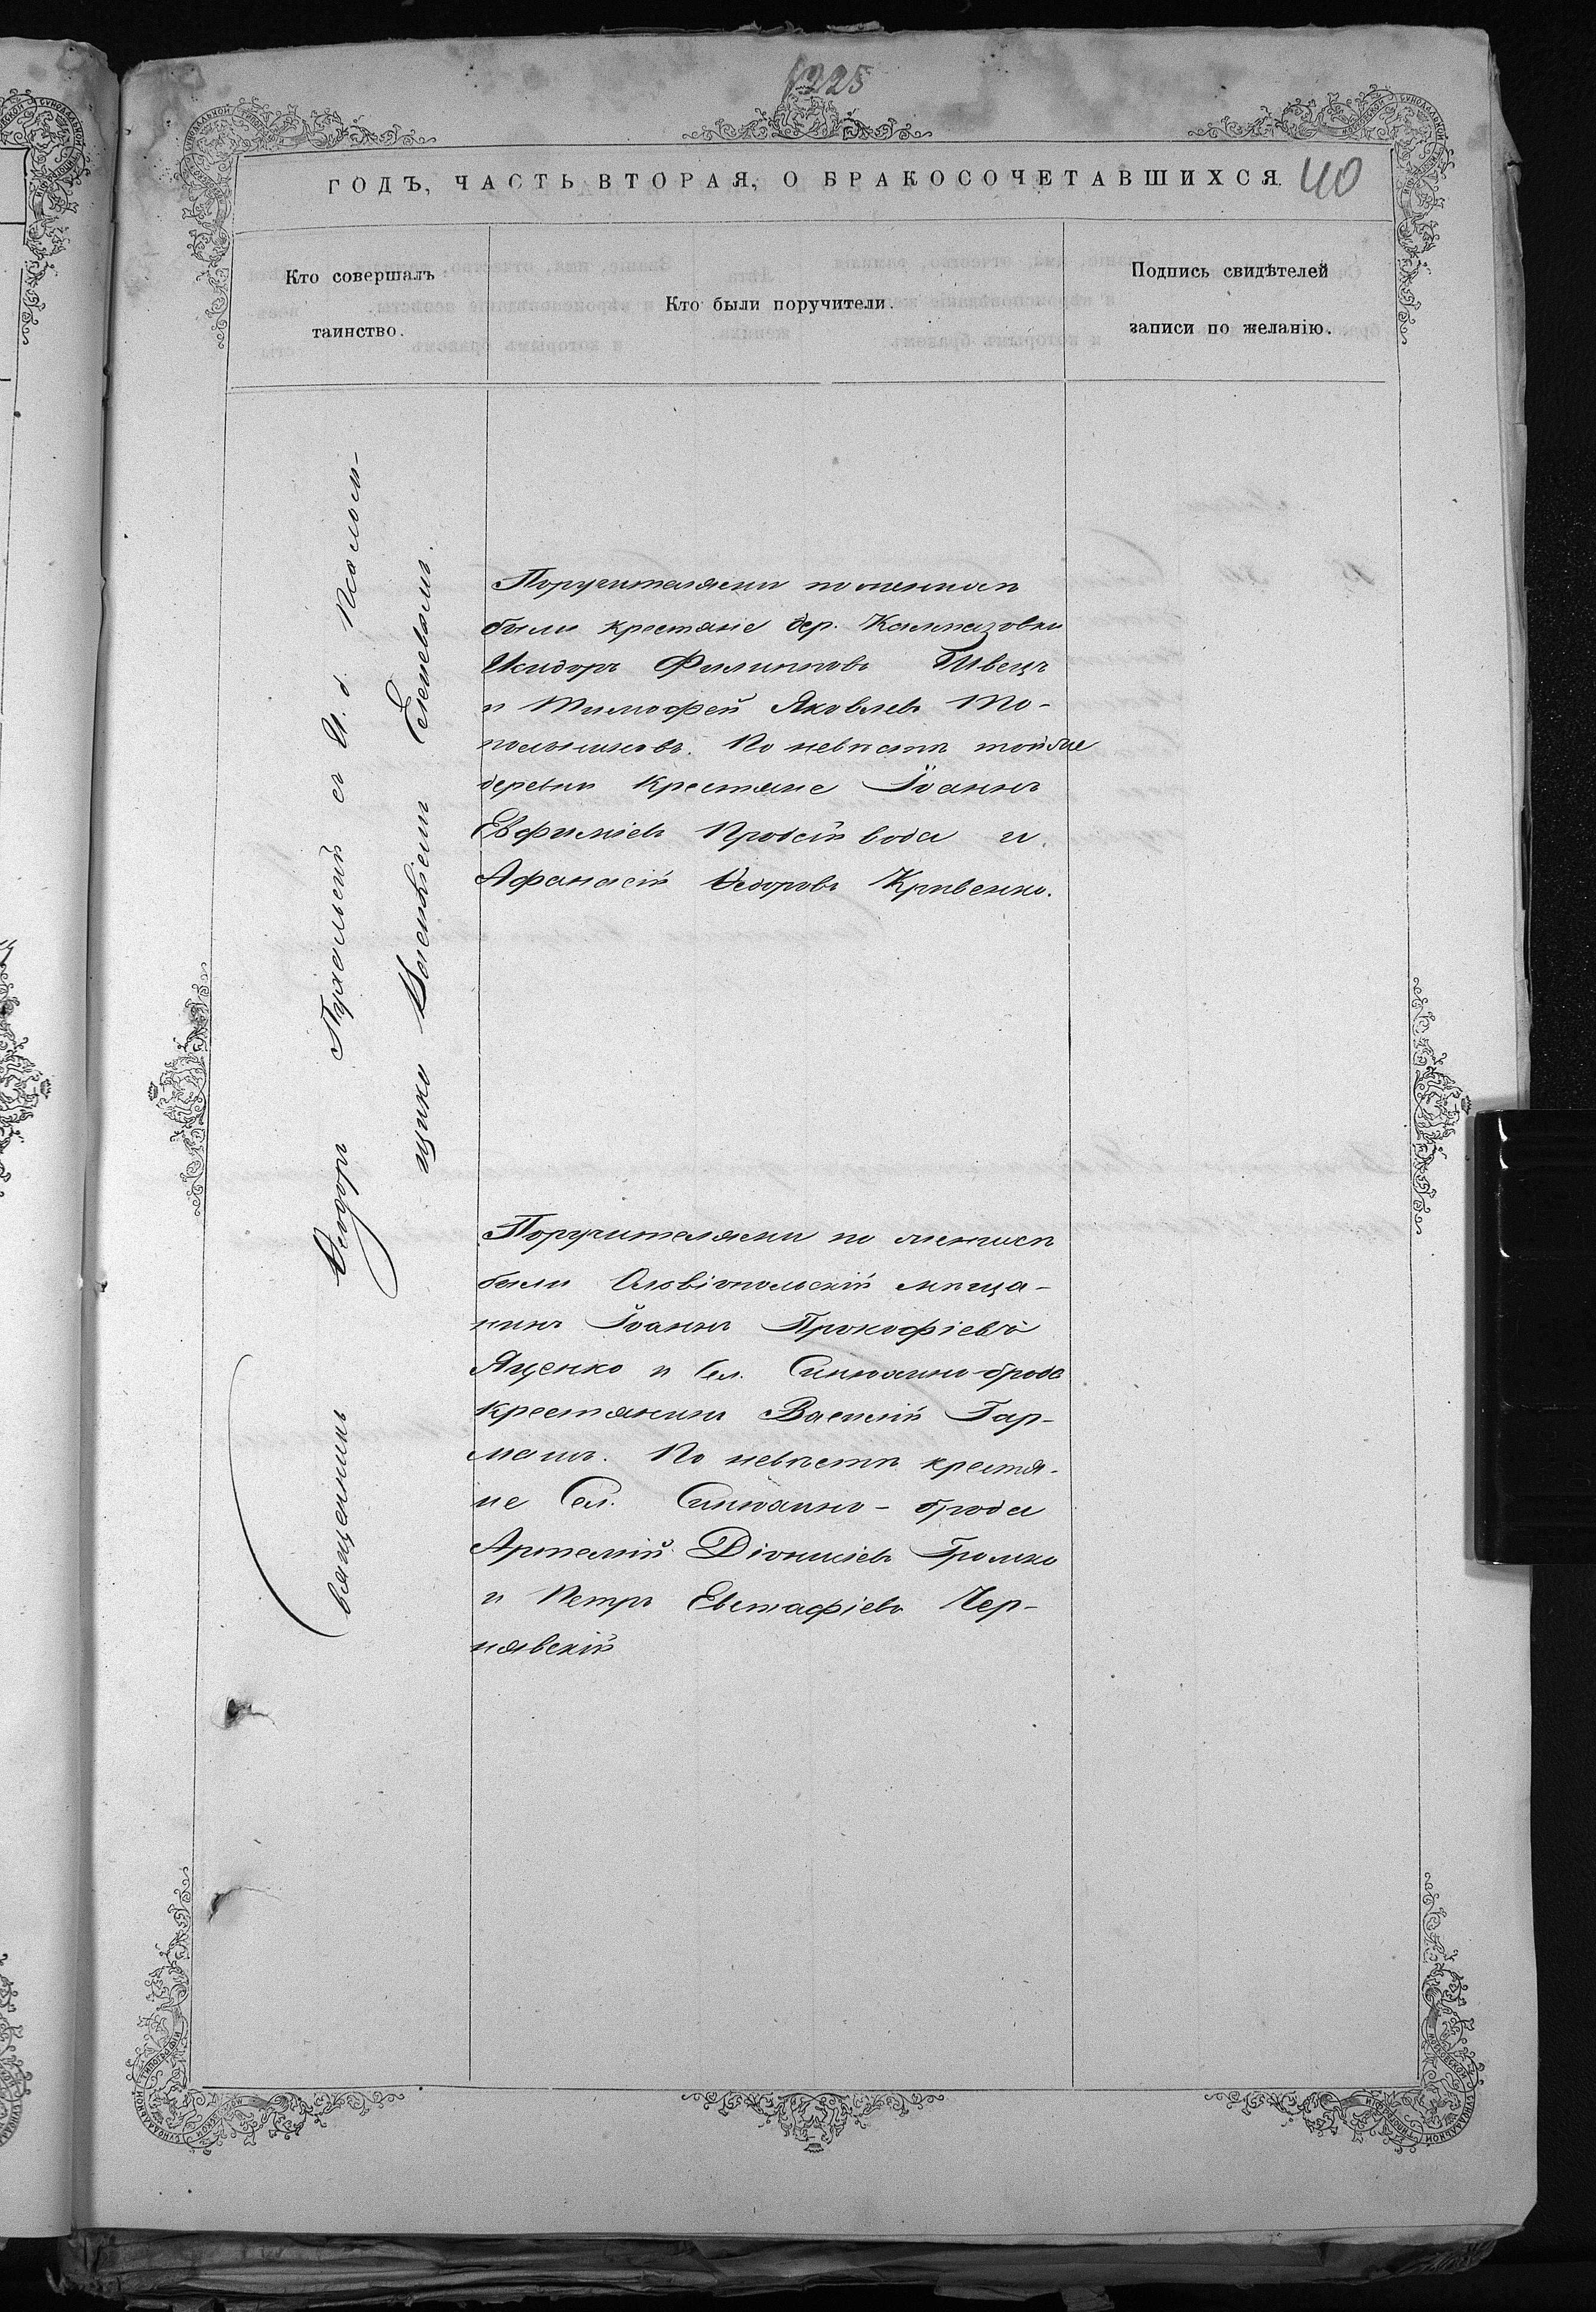 1225
ГОДЪ, ЧАСТЬ ВТОРАЯ, О БРАКОСОЧЕТАВШИХСЯ.
40
Кто совершалъ
таинство.
Кто были поручители.
Подпись свидѣтелей
записи по желанію.
Священникъ Ѳеодоръ съ И. д. псалом-
щика
Поручителями по женихѣ
были крестяне дер. Калмазовки
Исидоръ Филипповъ Швецъ
и Тимофей Яковлевъ То-
польниковъ. По невѣстѣ тойже
деревни крестяне Іоаннъ
Евфиміевъ Пройдивода и
Афанасій Ѳедоровъ Кривенко.
Поручителями по женихѣ
были Ольвіопольскій мѣща-
нинъ Іоаннъ Прокофіевъ
Яценко и Сел. Синюхино-брода
крестянинъ Василій Гар-
машъ. По невѣстѣ крестя-
не Сел. Синюхино-брода
Артемій Діонисіевъ Громко
и Петръ Евстафіевъ Чер-
нявскій